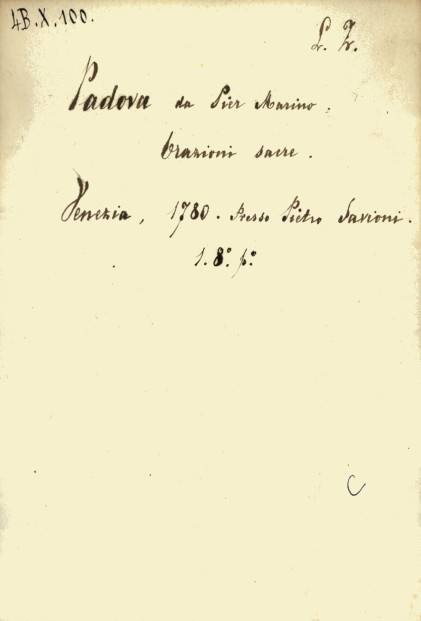 4B.X.100.
L. Z.
Padova da Pier Marino.
Orazioni sacre.
Venezia, 1780. Presso Pietro Savioni.
1. 8.° p.°
C